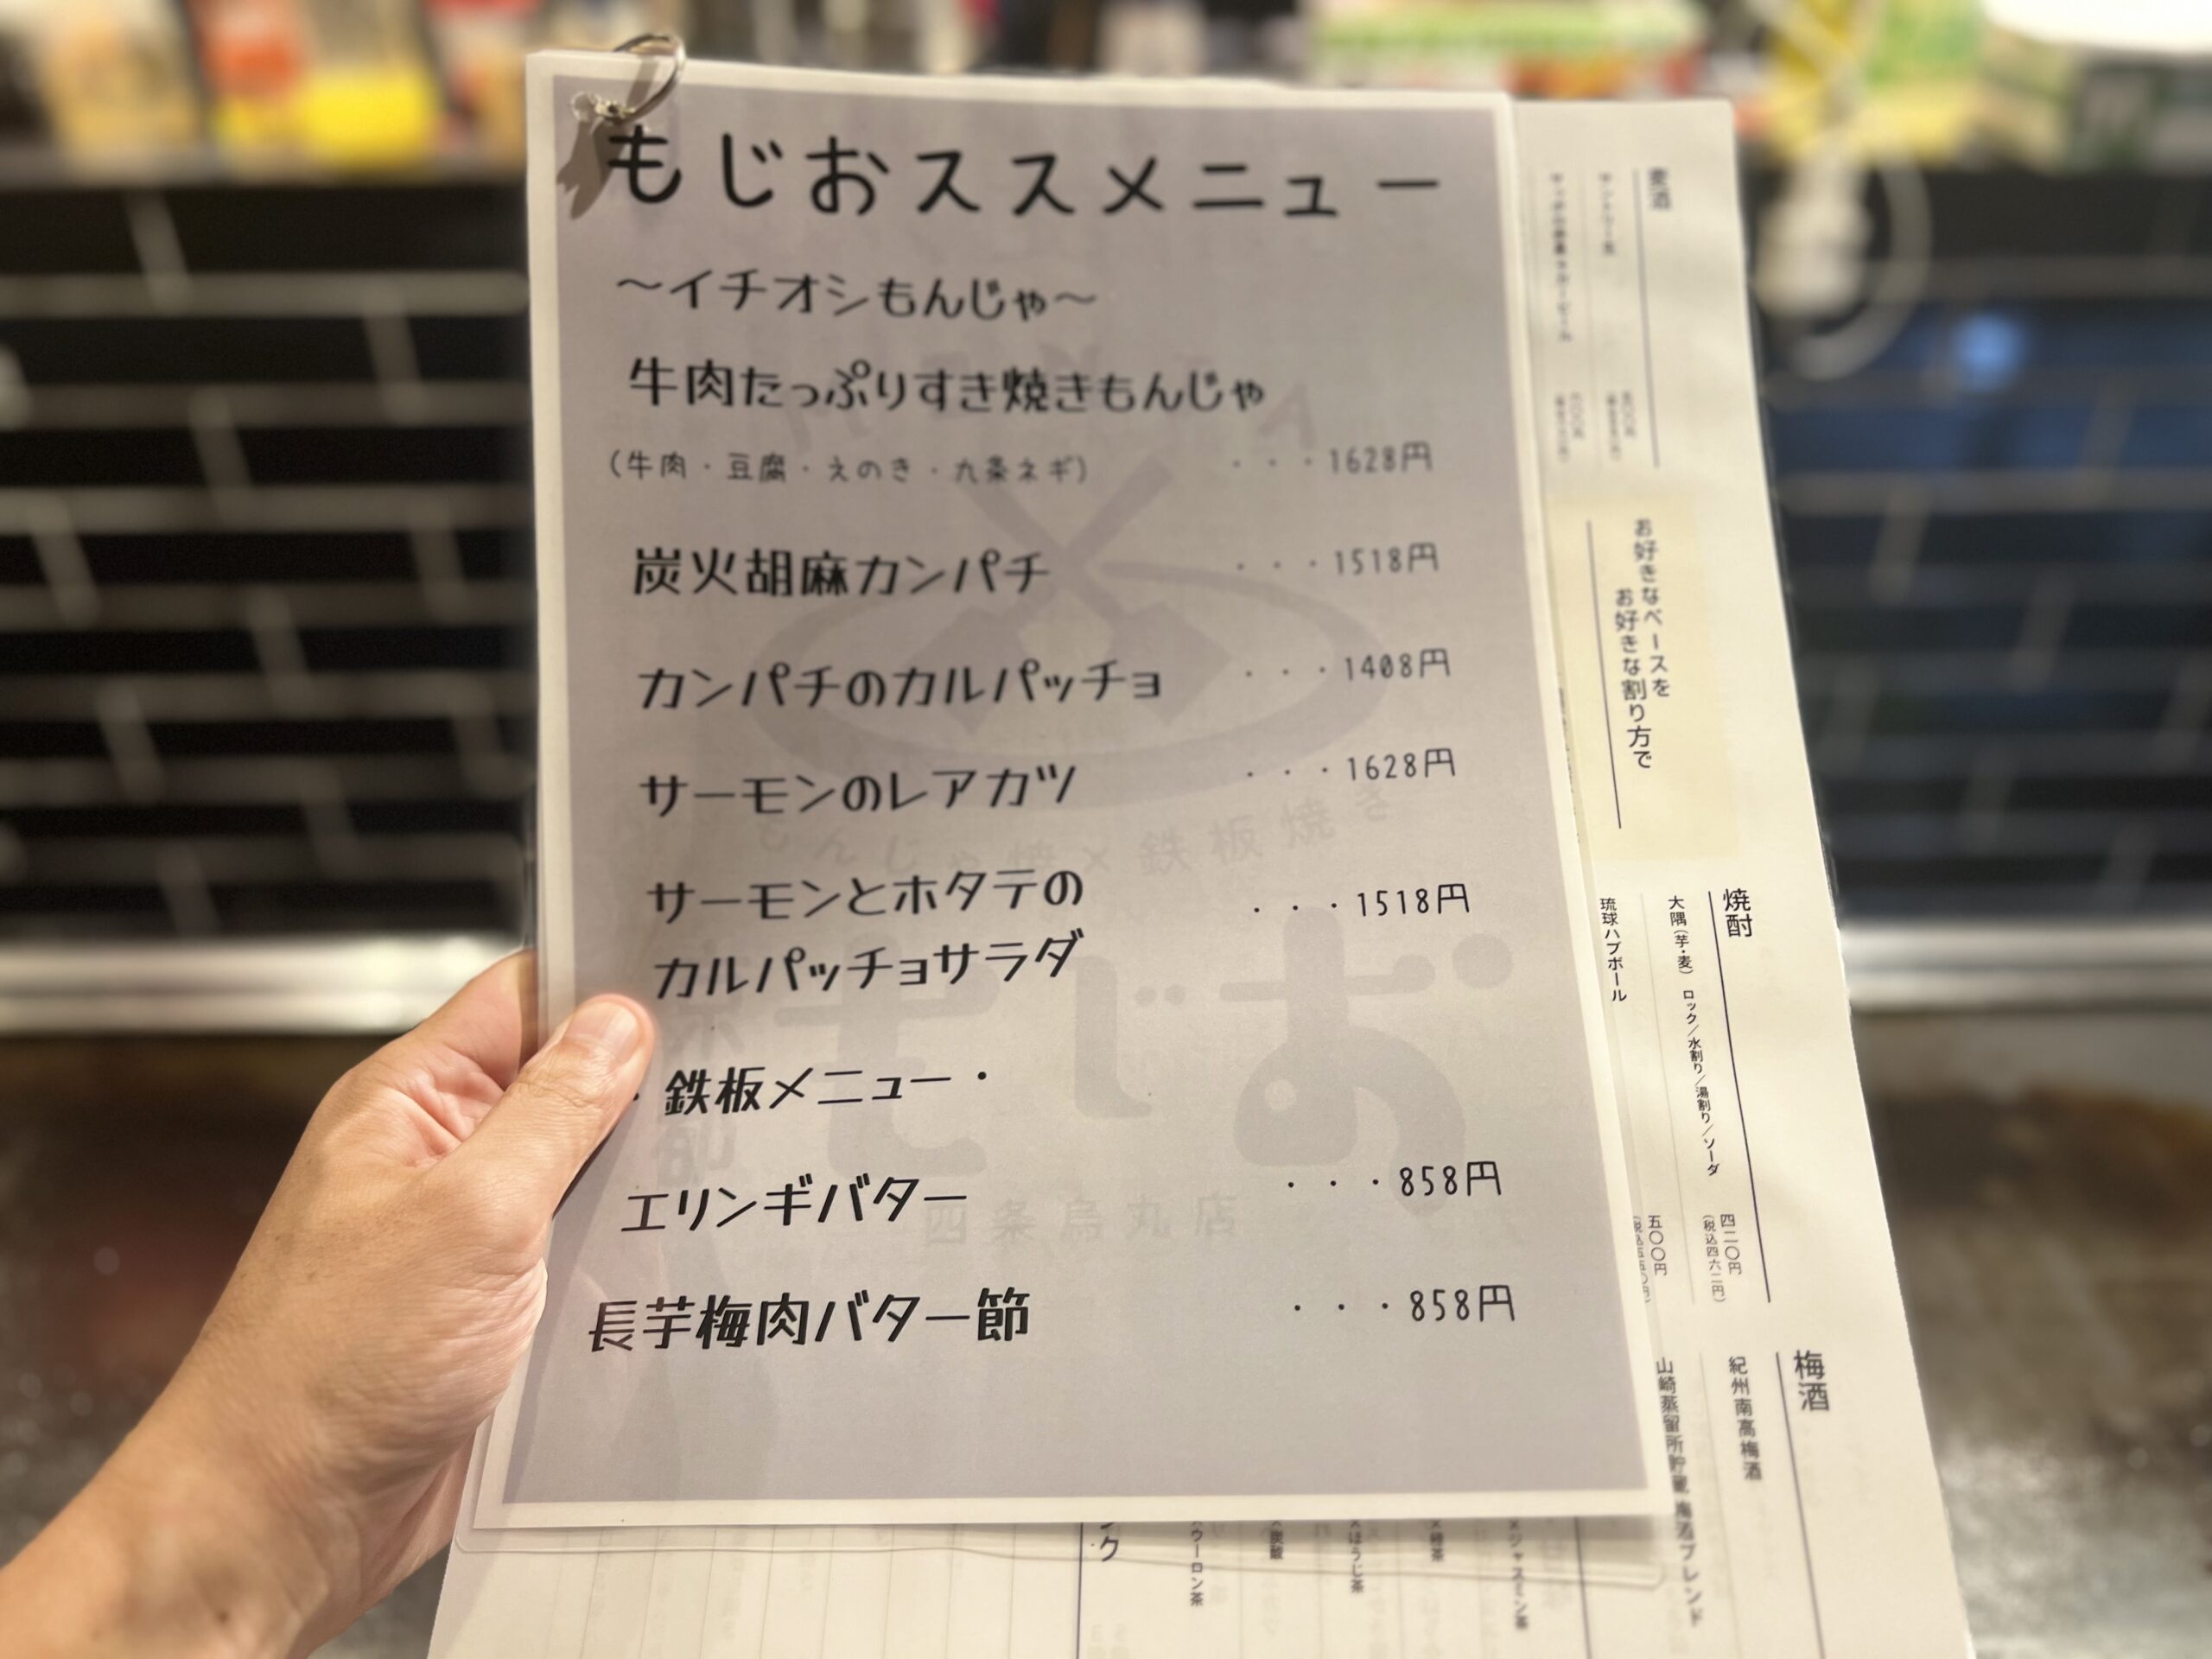 もじおススメニュー
～イチオシもんじゃ～
牛肉たっぷりすき焼きもんじゃ
(牛肉・豆腐・えのき・九条ネギ) ・・・1628円
炭火胡麻カンパチ ・・・1518円
カンパチのカルパッチョ ・・・1408円
サーモンのレアカツ ・・・1628円
サーモンとホタテの ・・・1518円
カルパッチョサラダ
・鉄板メニュー・
エリンギバター ・・・858円
長芋梅肉バター節 ・・・858円
もんじゃ焼×鉄板焼き
もじお
四条烏丸店
麦酒
お好きなベースを
お好きな割り方で
焼酎
大隅(芋・麦) ロック/水割り/湯割り/ソーダ 四二〇円
(税込四六二円)
琉球ハブボール 五〇〇円
(税込五五〇円)
梅酒
紀州南高梅酒
山崎蒸留所貯蔵 梅酒ブレンド
×ジャスミン茶
×緑茶
×ほうじ茶
×炭酸
×ウーロン茶